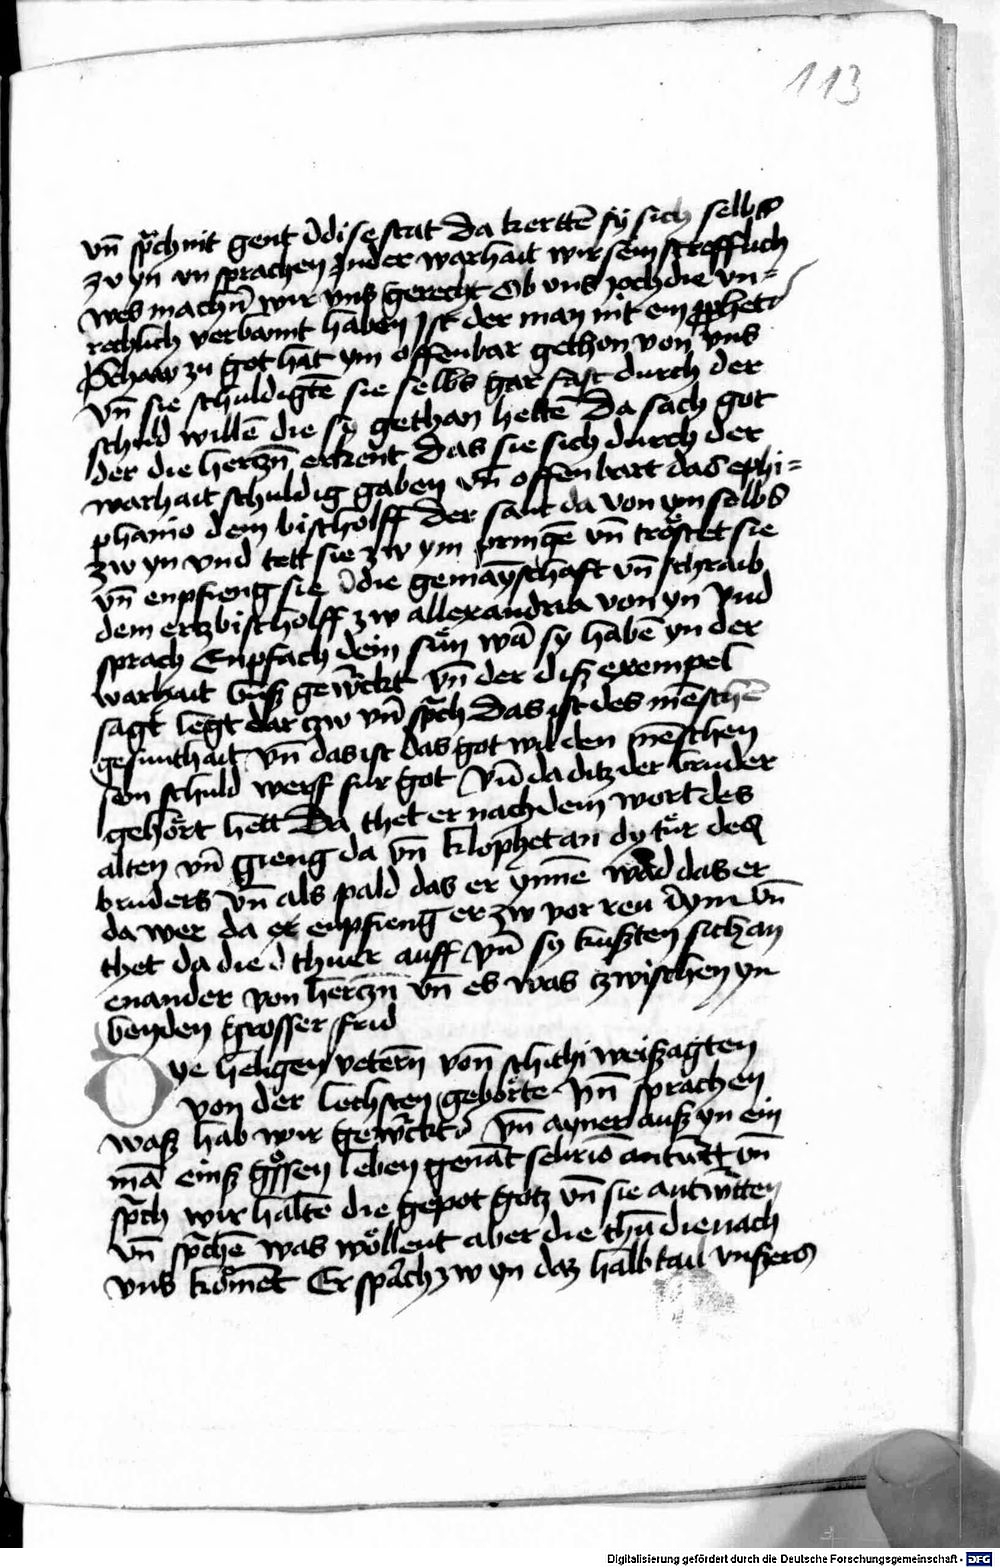 113
vn̄ sp̄ch nit gent in dise stat Da kertē sy sich selbs
zu yn vn sprachen In der warhait wir sein strefflich
wes machn̄ wir vns gerecht Ob vns joch die vn-
rechlich verbannt haben Ist der man nit ein p̄phet
Schaw zu got hat ym offenbar gethon von vns
vn̄ sie schuldigtē sie selbs gar fast durch der
schuld willē die sy gethan hettē Da sach got
der die hertzn̄ erkent Das sie sich durch der
warhait schuldig gaben vn̄ offenbart das ephi-
phanio dem bischolff der sant da von ym selbs
zw yn vnd tett sie zw ym pringē vn̄ tröstet sie
vn̄ enpfieng sie in die gemaÿschaft vn̄ schraib
dem ertzbischolff zw allexandria von yn Vnd
sprach Enpfach dein sün wā sy habē yn der
warhait buß gewürckt vn̄ der diß exempel
sagt legt dar zw vn̄ sp̄ch Das ist des mēschē
gesunthait vn̄ das ist das got wil den mēschen
sein schuld werf fur got Vn̄ da ditz der bruder
gehört hett Da thet er nach dem wort des
alten vn̄ gieng da vn̄ klophet an dy tür des
bruders vn̄ als pald das er ynnē ward das er
da wer da er enpfieng er zw vor reu in ym vn̄
thet da die thuer auff Vn̄ sy kußten sich an
enander von hertzn̄ vn̄ es was zwischen yn
beyden grosser frid
Dye heligen vetern̄ von schithi weißagten
von der lechsten gebörte vn̄ sprachen
waß hab wir gewürckt vn̄ ayner auß yn ein
mā einß grossen leben genāt scirio antwrt vn̄
sp̄ch wir haltē die gepot gotz vn̄ sie antwrtten
vn̄ sp̄chē was wöllent aber die thū die nach
vns komēt Er sprach zw yn daz halb tail vnßers
Digitalisierung gefördert durch die Deutsche Forschungsgemeinschaft - DFG